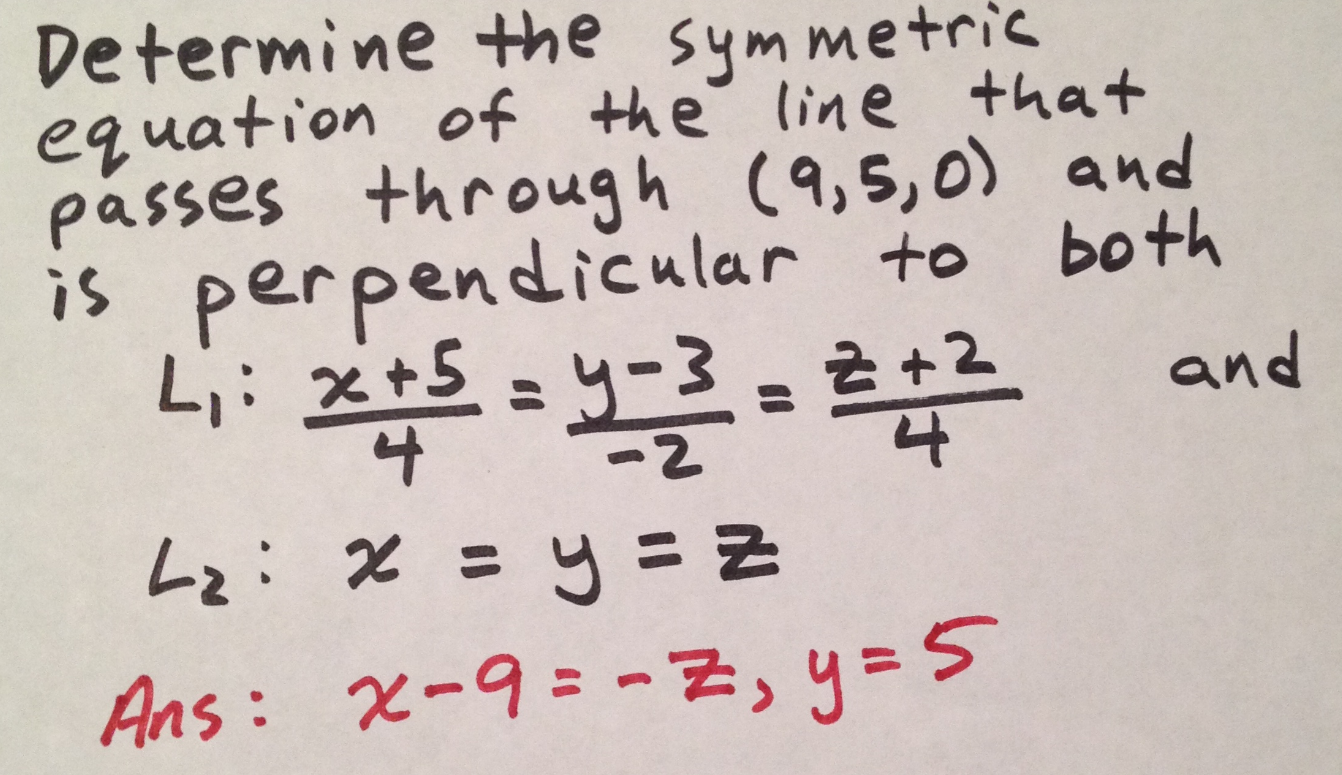 Determine the symmetric
equation of the line that
passes through (9,5,0) and
is perpendicular to both
L₁: (x+5)/4 = (y-3)/-2 = (z+2)/4 and
L₂: x = y = z
Ans: x-9 = -z, y=5